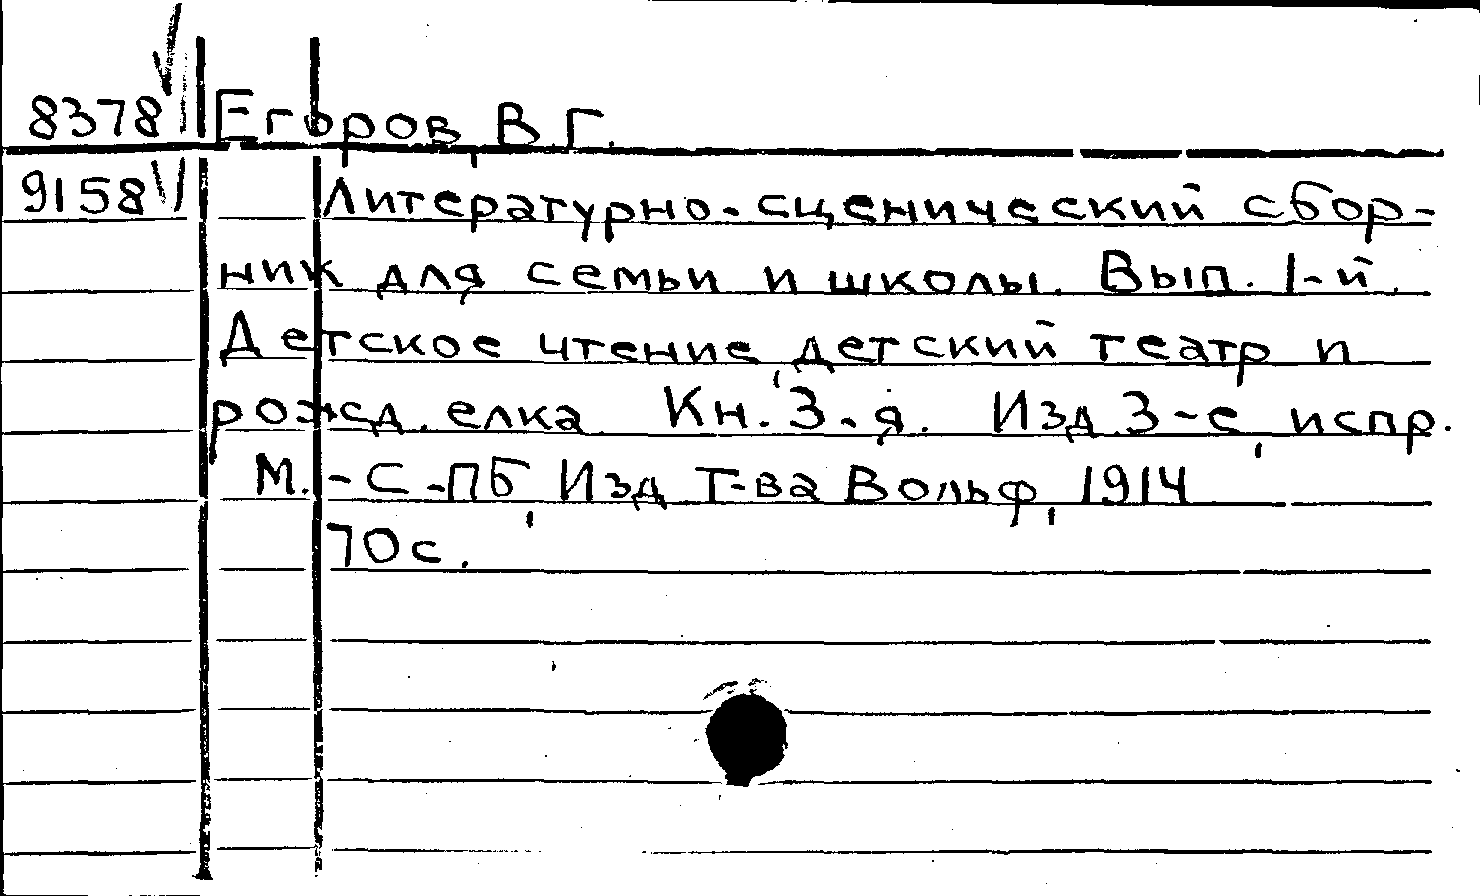 8378 Егоров, В.Г.
9158 Литературно-сценический сбор-
ник для семьи и школы. Вып. 1-й.
Детское чтение, детский театр и
рожд. елка. Кн. 3-я. Изд. 3-е, испр.
М.-С-ПБ, Изд. Т-ва Вольф, 1914
70с.